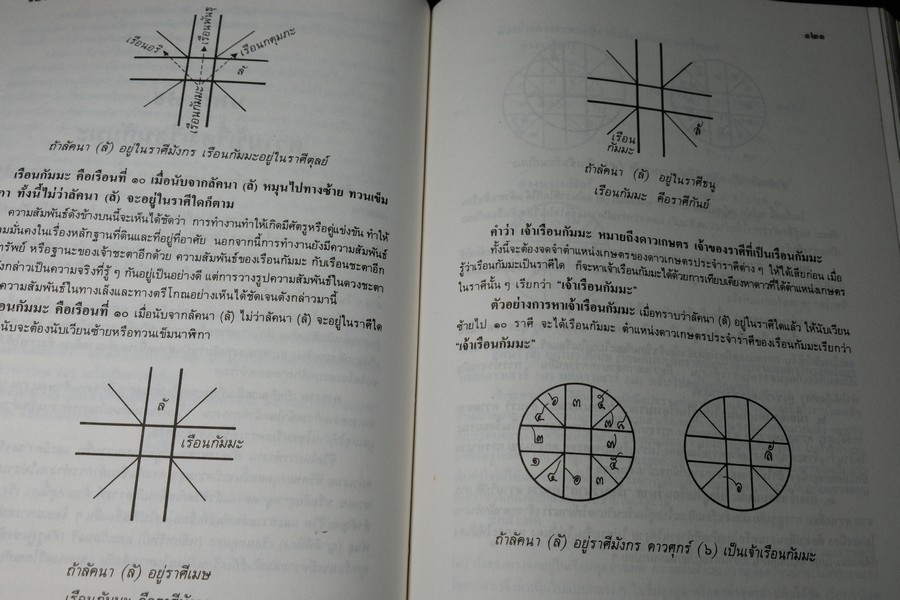 เรือนอริ
เรือนพันธุ
เรือนกดุมภะ
ลั
เรือนกัมมะ
ถ้าลัคนา (ลั) อยู่ในราศีมังกร เรือนกัมมะอยู่ในราศีตุลย์
เรือนกัมมะ คือเรือนที่ ๑๐ เมื่อนับจากลัคนา (ลั) หมุนไปทางซ้าย ทวนเข็ม
กา ทั้งนี้ไม่ว่าลัคนา (ลั) จะอยู่ในราศีใดก็ตาม
ความสัมพันธ์ดังข้างบนนี้จะเห็นได้ชัดว่า การทำงานทำให้เกิดมีศัตรูหรือคู่แข่งขัน ทำให้
ามมั่นคงในเรื่องหลักฐานที่ดินและที่อยู่ที่อาศัย นอกจากนี้การทำงานยังมีความสัมพันธ์
ทรัพย์ หรือฐานะของเจ้าชะตาอีกด้วย ความสัมพันธ์ของเรือนกัมมะ กับเรือนชะตาอีก
ังกล่าวเป็นความจริงที่รู้ ๆ กันอยู่เป็นอย่างดี แต่การวางรูปความสัมพันธ์ในดวงชะตา
ความสัมพันธ์ในทางเล็งและทางตรีโกณอย่างเห็นได้ชัดเจนดังกล่าวมานี้
อนกัมมะ คือเรือนที่ ๑๐ เมื่อนับจากลัคนา (ลั) ไม่ว่าลัคนา (ลั) จะอยู่ในราศีใด
นับจะต้องนับเวียนซ้ายหรือทวนเข็มนาฬิกา
ลั
เรือนกัมมะ
ถ้าลัคนา (ลั) อยู่ราศีเมษ
เรือนกัมมะ คือราศี
๑๒๑
เรือน
กัมมะ
ลั
ถ้าลัคนา (ลั) อยู่ในราศีธนู
เรือนกัมมะ คือราศีกันย์
คำว่า เจ้าเรือนกัมมะ หมายถึงดาวเกษตร เจ้าของราศีที่เป็นเรือนกัมมะ
ทั้งนี้จะต้องจดจำตำแหน่งเกษตรของดาวเกษตรประจำราศีต่าง ๆ ให้ได้เสียก่อน เมื่อ
รู้ว่าเรือนกัมมะเป็นราศีใด ก็จะหาเจ้าเรือนกัมมะได้ด้วยการเทียบเคียงหาดาวที่ได้ตำแหน่งเกษตร
ในราศีนั้น ๆ เรียกว่า “เจ้าเรือนกัมมะ”
ตัวอย่างการหาเจ้าเรือนกัมมะ เมื่อทราบว่าลัคนา (ลั) อยู่ในราศีใดแล้ว ให้นับเวียน
ซ้ายไป ๑๐ ราศี จะได้เรือนกัมมะ ตำแหน่งดาวเกษตรประจำราศีของเรือนกัมมะเรียกว่า
“เจ้าเรือนกัมมะ”
๖ ๓ ๕
๔ ๗ ๘
๒ ๗
๑ ๕
๔ ๓
ลั
๖
ถ้าลัคนา (ลั) อยู่ราศีมังกร ดาวศุกร์ (๖) เป็นเจ้าเรือนกัมมะ